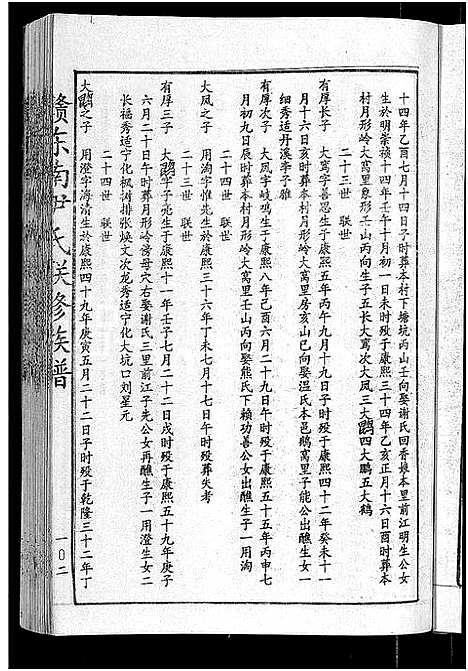 十四年乙酉七月十四日子时葬本村下塘坑丙山壬向娶谢氏回香娘本里前江明生公女
生於明崇祯十四年壬午十月初一日未时殁于康熙三十四年乙亥正月十六日酉时葬本
村月形岭大窝里象形壬山丙向生子五长大鸾次大凤三大鹍四大鹏五大鹤
二十三世 联世
有厚长子 大鸾字善恩生于康熙五年丙午九月十九日子时殁于康熙四十二年癸未十一
月十六日亥时葬本村月形岭大窝里房亥山巳向娶温氏本邑鹅万里子能公出醮生女一
细秀适丹溪李子雅
有厚次子 大凤字岐鸣生于康熙八年己酉六月二十九日午时殁于康熙五十五年丙申七
月初九日辰时葬本村月形岭大窝里壬山丙向娶熊氏下赖功善公女出醮生子一用洵
二十四世 联世
大凤之子 用洵字惟先生於康熙三十六年丁未七月十七日午时殁葬失考
二十三世 联世
有厚三子 大鹍字子尧生于康熙十一年壬子七月二十二日戌时殁于康熙五十九年庚子
六月二十日午时葬月形岭傍母穴右娶谢氏三里前江子先公女再醮生子一用澄生女二
长福秀适宁化枫树排张焕文次龙秀适宁化大坑口刘星元
二十四世 联世
大鹍之子 用澄字海清生於康熙四十九年庚寅五月二十二日子时殁于乾隆三十二年丁
赣东南尹氏联修族谱
一〇二